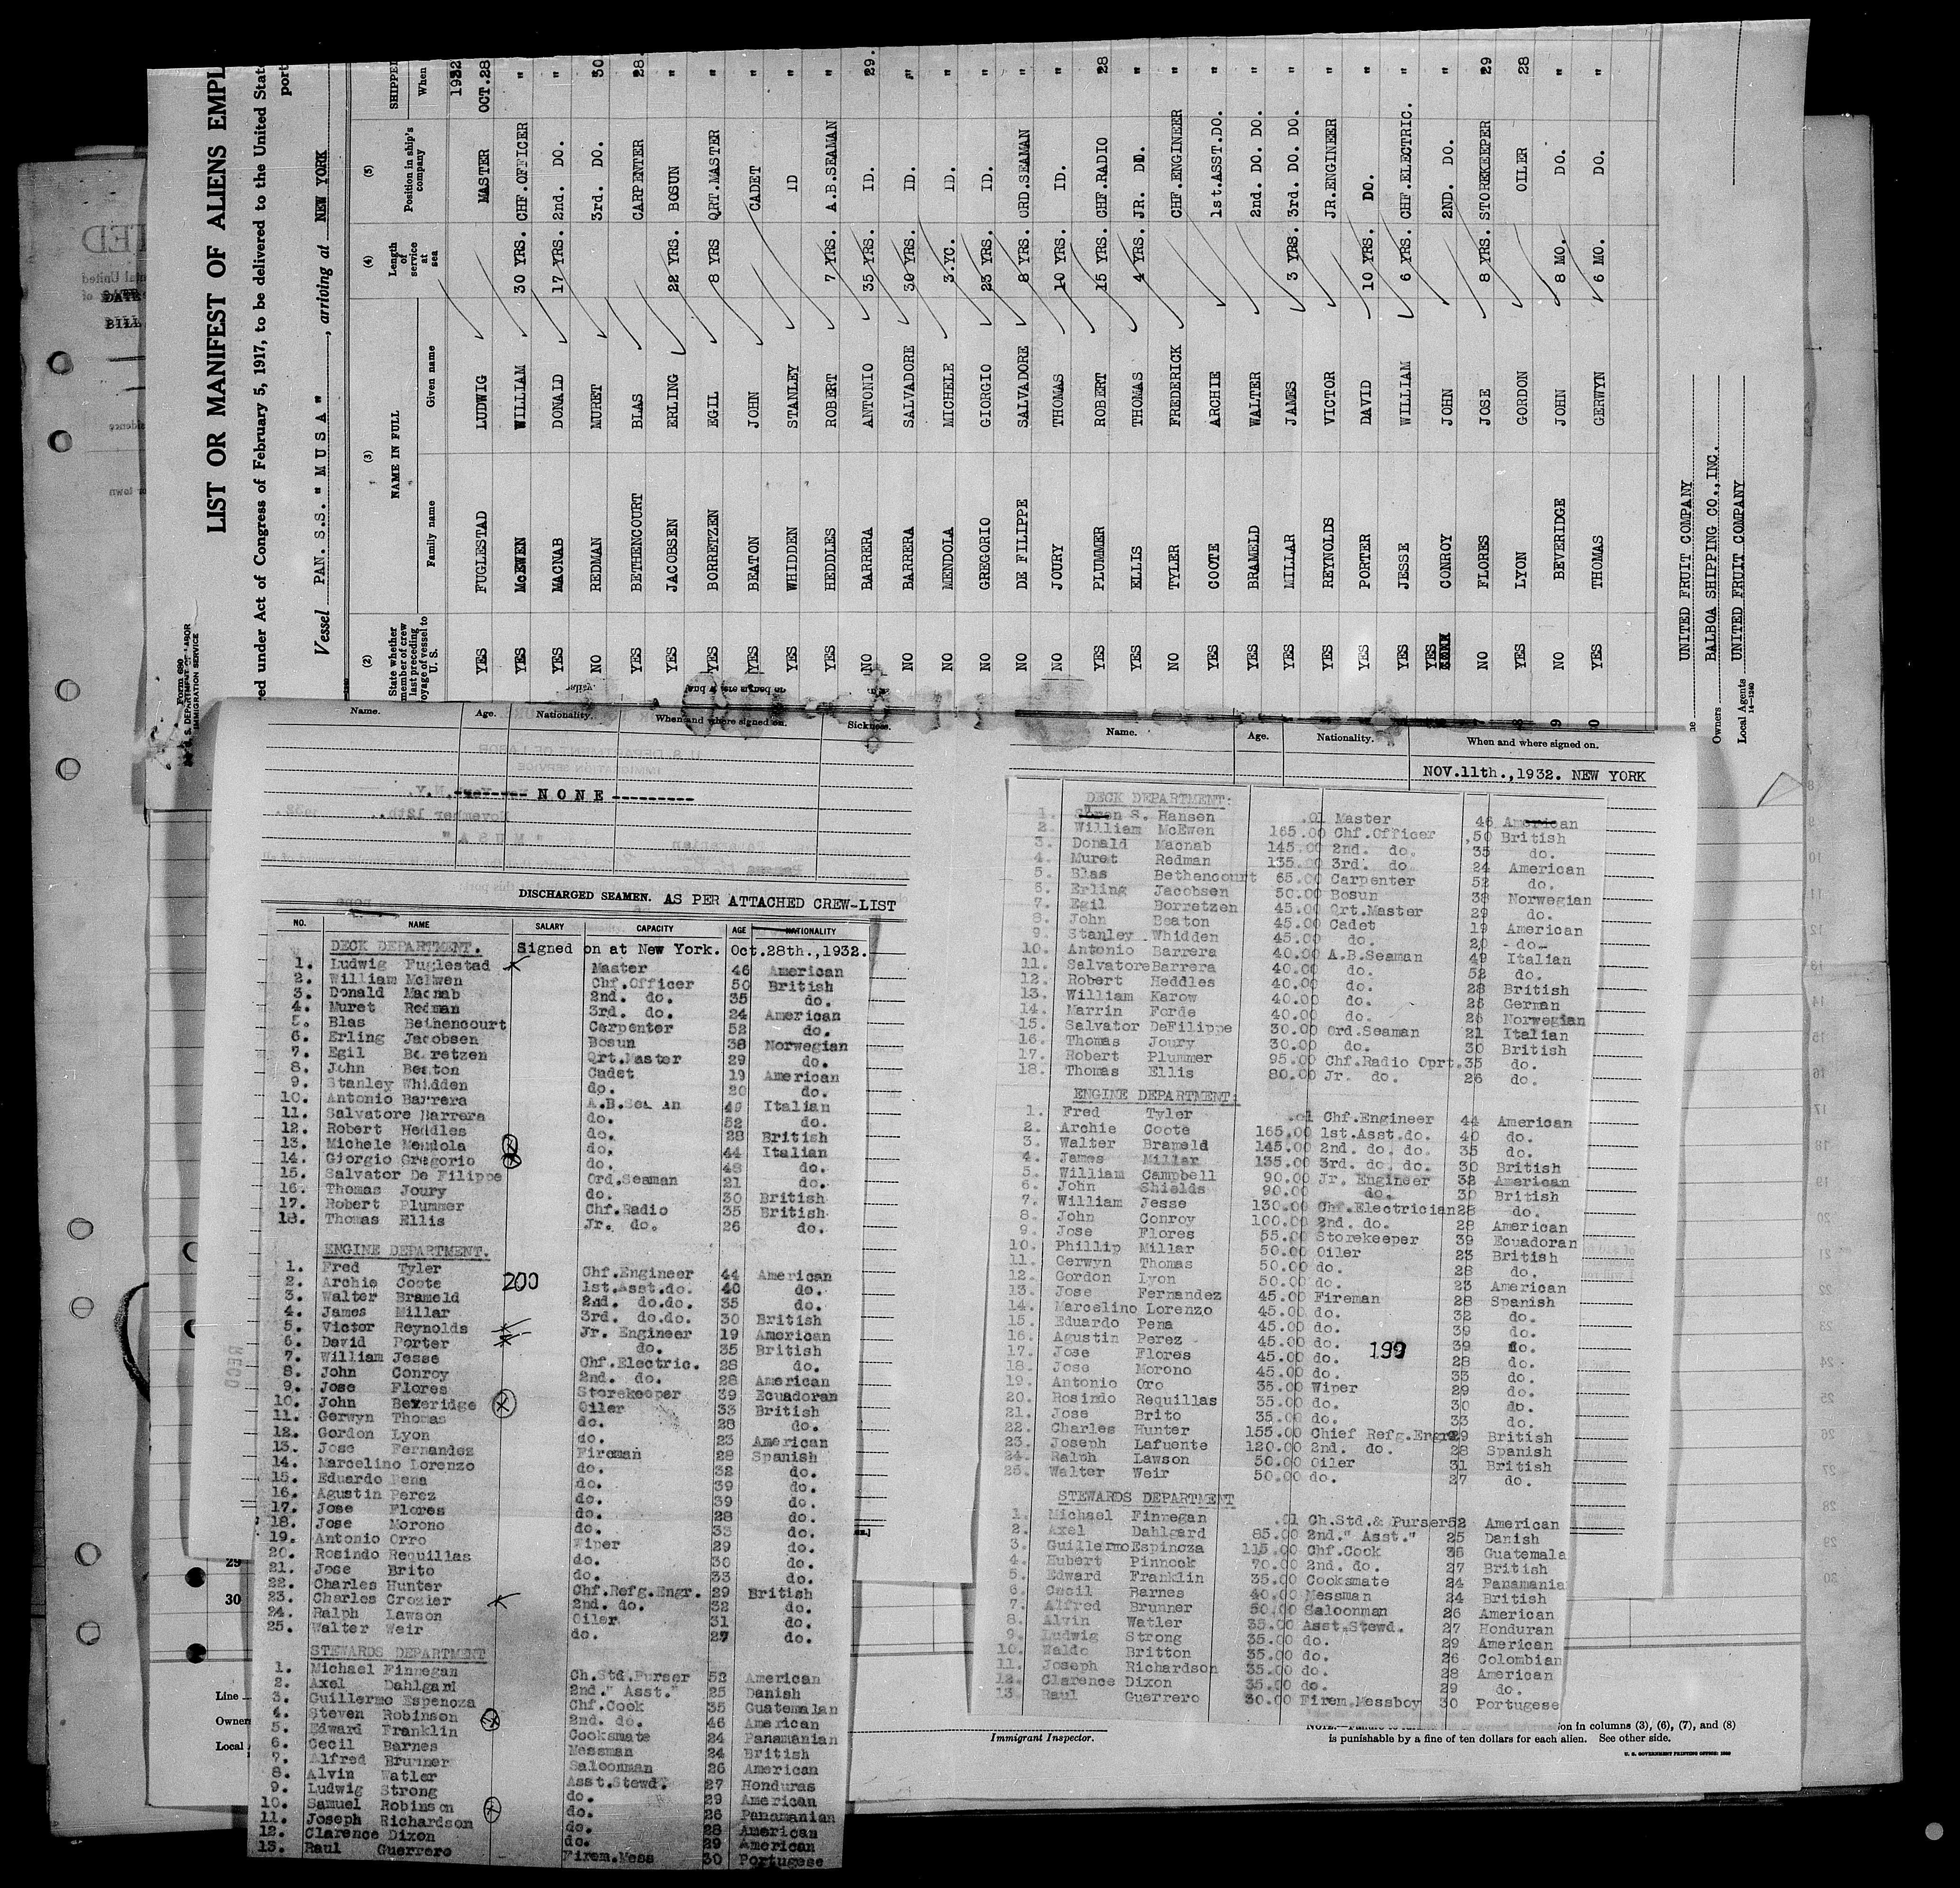 LIST OR MANIFEST OF ALIENS EMPL
red under Act of Congress of February 5, 1917, to be delivered to the United State
port
Form 680
U. S. DEPARTMENT OF LABOR
IMMIGRATION SERVICE
Vessel PAN. S.S. "M U S A", arriving at NEW YORK
(2) (3) (4) (5)
State whether member of crew last preceding voyage of vessel to U. S. NAME IN FULL Family name Given name Length of service at sea Position in ship's company SHIPPED When
1932
YES FUGLESTAD LUDWIG MASTER OCT.28
YES McEWEN WILLIAM 30 YRS. CHF.OFFICER "
YES MACNAB DONALD 17 YRS. 2nd. DO. "
NO REDMAN MURET 3rd. DO. 30
YES BETHENCOURT BLAS CARPENTER 28
YES JACOBSEN ERLING 22 YRS. BOSUN "
YES BORRETZEN EGIL 8 YRS QRT.MASTER "
YES BEATON JOHN CADET "
YES WHIDDEN STANLEY ID "
YES HEDDLES ROBERT 7 YRS. A.B.SEAMAN "
NO BARRERA ANTONIO 35 YRS. ID. 29.
NO BARRERA SALVADORE 30 YRS. ID. "
NO MENDOLA MICHELE 3.YO. ID. "
NO GREGORIO GIORGIO 23 YRS. ID. "
NO DE FILIPPE SALVADORE 8 YRS. ORD.SEAMAN "
NO JOURY THOMAS 10 YRS. ID. "
YES PLUMMER ROBERT 15 YRS. CHF.RADIO 28
YES ELLIS THOMAS 4 YRS. JR. DO. "
NO TYLER FREDERICK CHF.ENGINEER "
YES COOTE ARCHIE 1st.ASST.DO. "
YES BRAMELD WALTER 2nd. DO. DO. "
YES MILLAR JAMES 3 YRS. 3rd. DO. DO. "
YES REYNOLDS VICTOR JR.ENGINEER "
YES PORTER DAVID 10 YRS. DO. "
YES JESSE WILLIAM 6 YRS. CHF.ELECTRIC. "
YES CONROY JOHN 2ND. DO. "
NO FLORES JOSE 8 YRS. STOREKEEPER 29
YES LYON GORDON OILER 28
NO BEVERIDGE JOHN 8 MO. DO. "
YES THOMAS GERWYN 6 MO. DO. "
UNITED FRUIT COMPANY
Owners BALBOA SHIPPING CO., INC.
Local Agents UNITED FRUIT COMPANY
14—1240
Name. Age. Nationality. When and where signed on. Sickness.
NONE
DISCHARGED SEAMEN. AS PER ATTACHED CREW-LIST
NO. NAME SALARY CAPACITY AGE NATIONALITY
DECK DEPARTMENT. Signed on at New York. Oct.28th.,1932.
1. Ludwig Fuglestad Master 46 American
2. William McEwen Chf.Officer 50 British
3. Donald Macnab 2nd. do. 35 do.
4. Muret Redman 3rd. do. 24 American
5. Blas Bethencourt Carpenter 52 do.
6. Erling Jacobsen Bosun 38 Norwegian
7. Egil Borretzen Qrt.Master 29 do.
8. John Beaton Cadet 19 American
9. Stanley Whidden do. 20 do.
10. Antonio Barrera A.B.Seaman 49 Italian
11. Salvatore Barrera do. 52 do.
12. Robert Heddles do. 28 British
13. Michele Mendola do. 44 Italian
14. Giorgio Gregorio do. 48 do.
15. Salvator De Filippe Ord.Seaman 21 do.
16. Thomas Joury do. 30 British
17. Robert Plummer Chf.Radio 35 British
18. Thomas Ellis Jr. do. 26 do.
ENGINE DEPARTMENT.
1. Fred Tyler Chf.Engineer 44 American
2. Archie Coote 200 1st.Asst.do. 40 do.
3. Walter Brameld 2nd. do.do. 35 do.
4. James Millar 3rd. do.do. 30 British
5. Victor Reynolds Jr. Engineer 19 American
6. David Porter do. 35 British
7. William Jesse Chf.Electric. 28 do.
8. John Conroy 2nd. do. 28 American
9. Jose Flores Storekeeper 39 Ecuadoran
10. John Beveridge Oiler 33 British
11. Gerwyn Thomas do. 28 do.
12. Gordon Lyon do. 23 American
13. Jose Fernandez Fireman 28 Spanish
14. Marcelino Lorenzo do. 32 do.
15. Eduardo Pena do. 39 do.
16. Agustin Perez do. 39 do.
17. Jose Flores do. 28 do.
18. Jose Morono do. 33 do.
19. Antonio Orro Wiper 29 do.
20. Rosindo Requillas do. 30 do.
21. Jose Brito do. 33 do.
22. Charles Hunter Chf.Refg.Engr. 29 British
23. Charles Crozier 2nd. do. 32 do.
24. Ralph Lawson Oiler 31 do.
25. Walter Weir do. 27 do.
STEWARDS DEPARTMENT
1. Michael Finnegan Ch.Std.Purser 52 American
2. Axel Dahlgard 2nd." Asst." 25 Danish
3. Guillermo Espenoza Chf.Cook 35 Guatemalan
4. Steven Robinson 2nd. do. 46 American
5. Edward Franklin Cooksmate 24 Panamanian
6. Cecil Barnes Messman 24 British
7. Alfred Brunner Saloonman 26 American
8. Alvin Watler Asst.Stewd. 27 Honduras
9. Ludwig Strong do. 29 American
10. Samuel Robinson do. 26 Panamanian
11. Joseph Richardson do. 28 American
12. Clarence Dixon do. 29 American
13. Raul Guerrero Firem.Mess 30 Portugese
Name. Age. Nationality. When and where signed on.
NOV.11th.,1932. NEW YORK
DECK DEPARTMENT:
1. S. Hansen .01 Master 46 American
2. William McEwen 165.00 Chf.Officer 50 British
3. Donald Macnab 145.00 2nd. do. 35 do.
4. Muret Redman 135.00 3rd. do 24 American
5. Blas Bethencourt 65.00 Carpenter 52 do.
6. Erling Jacobsen 50.00 Bosun 38 Norwegian
7. Egil Borretzen 45.00 Qrt.Master 29 do.
8. John Beaton 45.00 Cadet 19 American
9. Stanley Whidden 45.00 do. 20 -do-
10. Antonio Barrera 40.00 A.B.Seaman 49 Italian
11. Salvatore Barrera 40.00 do. 52 do.
12. Robert Heddles 40.00 do. 28 British
13. William Karow 40.00 do. 26 German
14. Marrin Forde 40.00 do. 26 Norwegian
15. Salvator DeFilippe 30.00 Ord.Seaman 21 Italian
16. Thomas Joury 30.00 do. 30 British
17. Robert Plummer 95.00 Chf.Radio Oprt. 35 do.
18. Thomas Ellis 80.00 Jr. do. 26 do.
ENGINE DEPARTMENT:
1. Fred Tyler .01 Chf.Engineer 44 American
2. Archie Coote 165.00 1st.Asst.do. 40 do.
3. Walter Brameld 145.00 2nd. do. do. 35 do.
4. James Millar 135.00 3rd. do. do. 30 British
5. William Campbell 90.00 Jr. Engineer 32 American
6. John Shields 90.00 do. 30 British
7. William Jesse 130.00 Chf.Electrician 28 do.
8. John Conroy 100.00 2nd. do. 28 American
9. Jose Flores 55.00 Storekeeper 39 Ecuadoran
10. Phillip Millar 50.00 Oiler 23 British
11. Gerwyn Thomas 50.00 do. 28 do.
12. Gordon Lyon 50.00 do. 23 American
13. Jose Fernandez 45.00 Fireman 28 Spanish
14. Marcelino Lorenzo 45.00 do. 32 do.
15. Eduardo Pena 45.00 do. 39 do.
16. Agustin Perez 45.00 do. 39 do.
17. Jose Flores 45.00 do. 199 28 do.
18. Jose Morono 45.00 do. 33 do.
19. Antonio Oro 35.00 Wiper 29 do.
20. Rosindo Requillas 35.00 do. 30 do.
21. Jose Brito 35.00 do. 33 do.
22. Charles Hunter 155.00 Chief Refg.Engr. 29 British
23. Joseph Lafuente 120.00 2nd. do. 28 Spanish
24. Ralph Lawson 50.00 Oiler 31 British
25. Walter Weir 50.00 do. 27 do.
STEWARDS DEPARTMENT
1. Michael Finnegan .01 Ch.Std.& Purser 52 American
2. Axel Dahlgard 85.00 2nd." Asst." 25 Danish
3. Guillermo Espinoza 115.00 Chf.Cook 36 Guatemala
4. Hubert Pinnock 70.00 2nd. do. 27 British
5. Edward Franklin 35.00 Cooksmate 24 Panamania
6. Cecil Barnes 40.00 Messman 24 British
7. Alfred Brunner 50.00 Saloonman 26 American
8. Alvin Watler 35.00 Asst.Stewd. 27 Honduran
9. Ludwig Strong 35.00 do. 29 American
10. Waldo Britton 35.00 do. 26 Colombian
11. Joseph Richardson 35.00 do. 28 American
12. Clarence Dixon 35.00 do. 29 do.
13. Raul Guerrero 30.00 Firem.Messboy 30 Portugese
29
30
Line
Owners
Local
Immigrant Inspector.
in columns (3), (6), (7), and (8)
is punishable by a fine of ten dollars for each alien. See other side.
U. S. GOVERNMENT PRINTING OFFICE